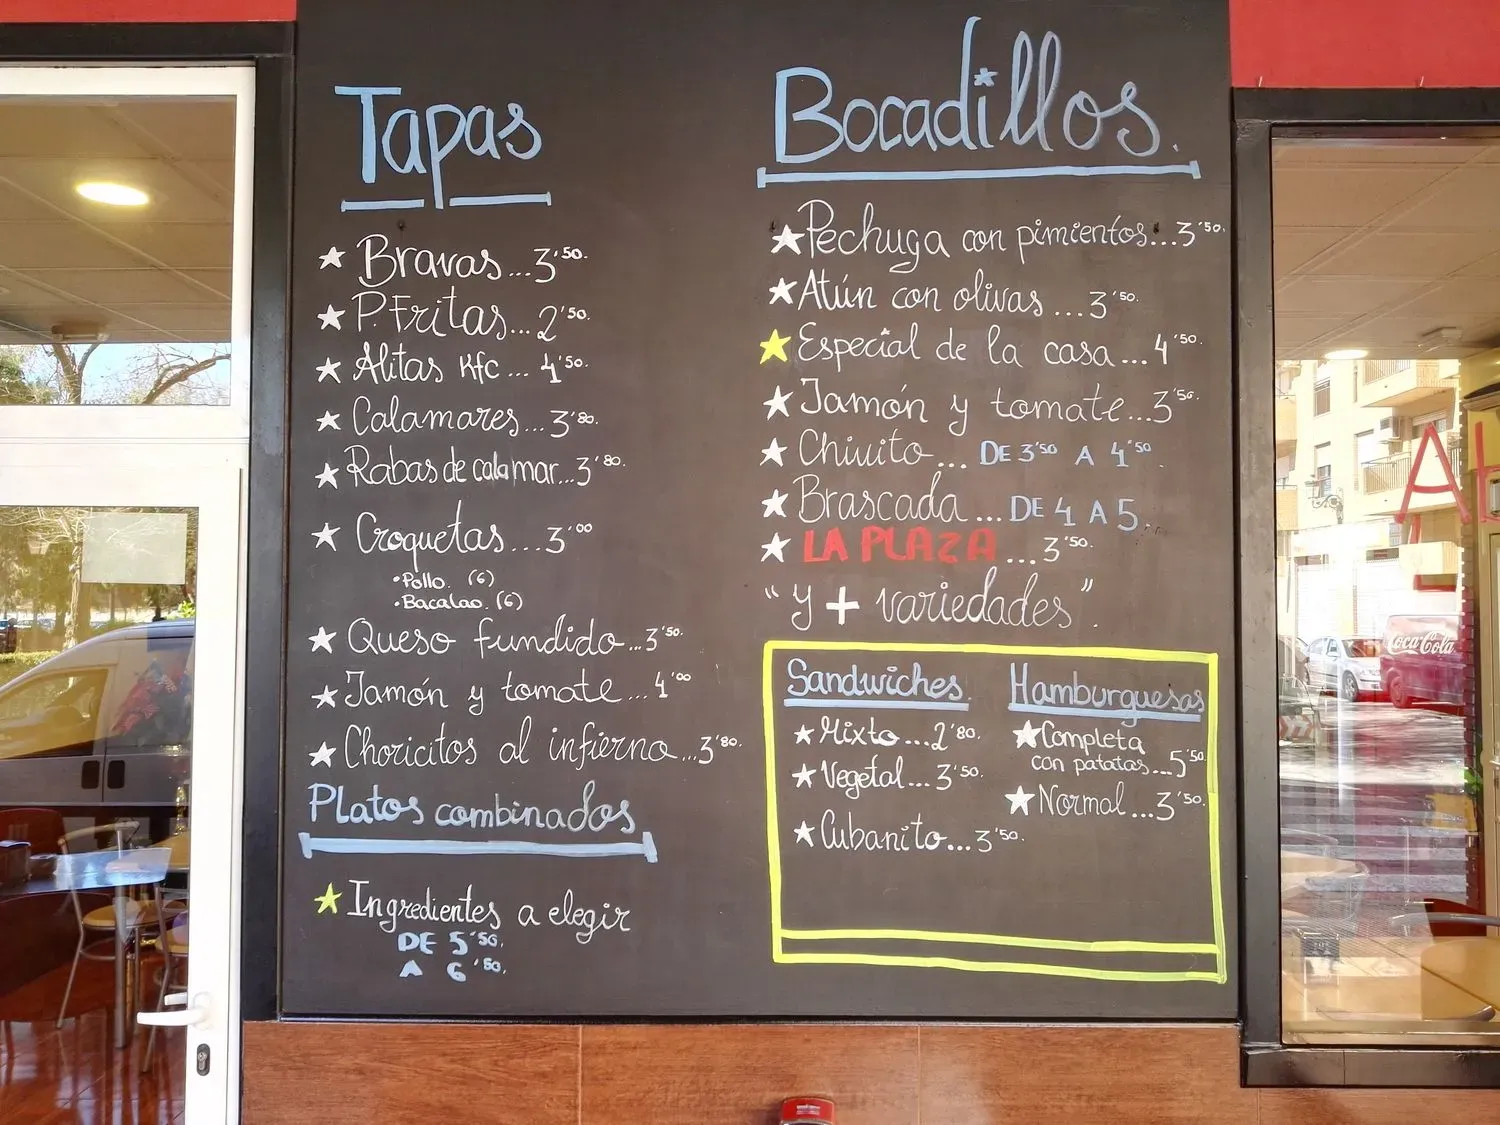 Tapas
Bravas...3'50.
P.Fritas...2'50.
Alitas Kfc...4'50.
Calamares...3'80.
Rabas de calamar...3'80.
Croquetas...3'00
•Pollo. (6)
•Bacalao. (6)
Queso fundido...3'50.
Jamón y tomate...4'00
Choricitos al infierno...3'80.
Platos combinados
Ingredientes a elegir
DE 5'50.
A 6'50.
Bocadillos.
Pechuga con pimientos...3'50.
Atún con olivas...3'50.
Especial de la casa...4'50.
Jamón y tomate...3'50.
Chivito... DE 3'50 A 4'50.
Brascada...DE 4 A 5.
LA PLAZA...3'50.
"y + variedades".
Sandwiches.
Mixto...2'80.
Vegetal...3'50.
Cubanito...3'50.
Hamburguesas
Completa
con patatas...5'50.
Normal...3'50.
Coca-Cola